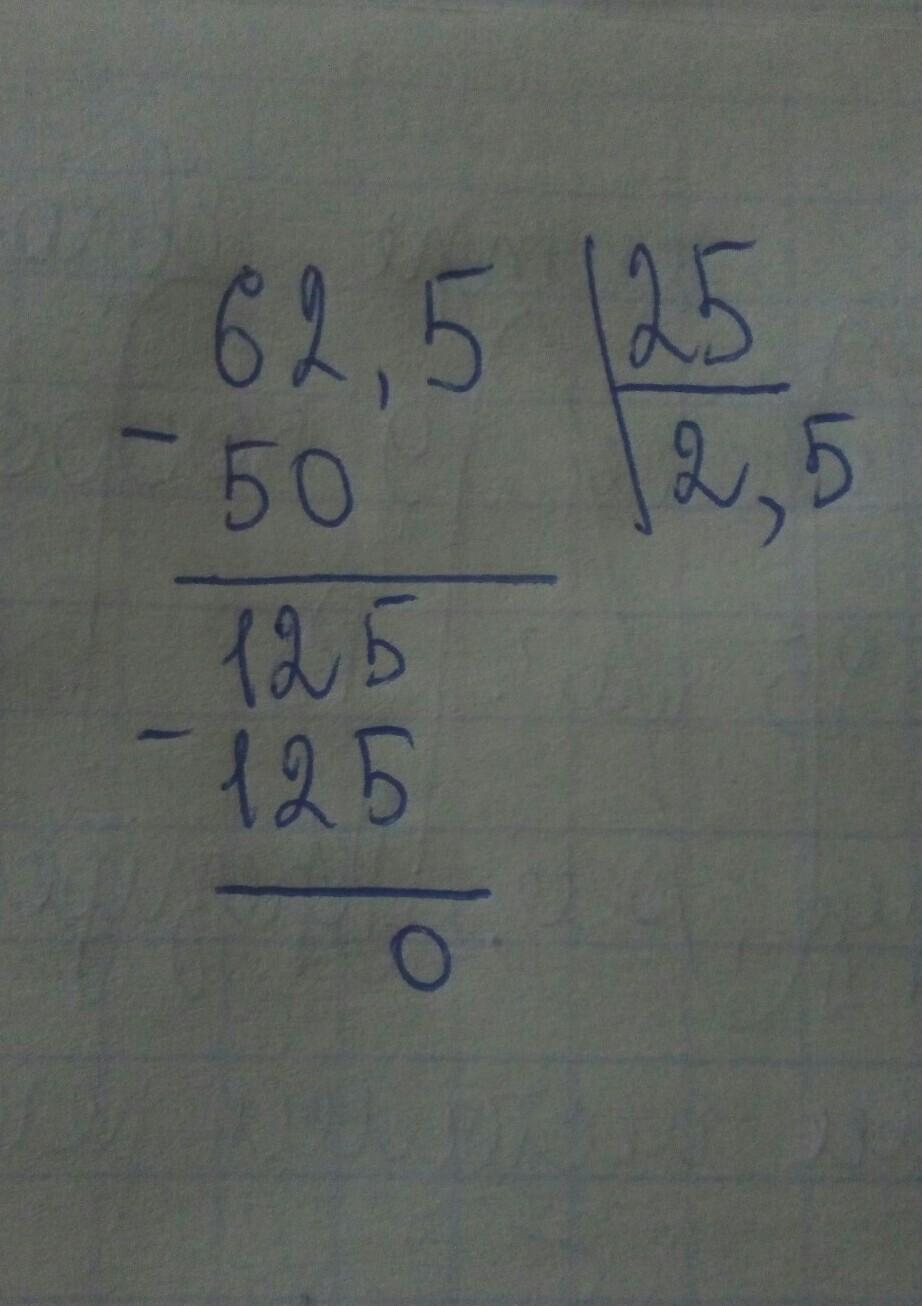 62,5 25
- 50 2,5
125
- 125
0